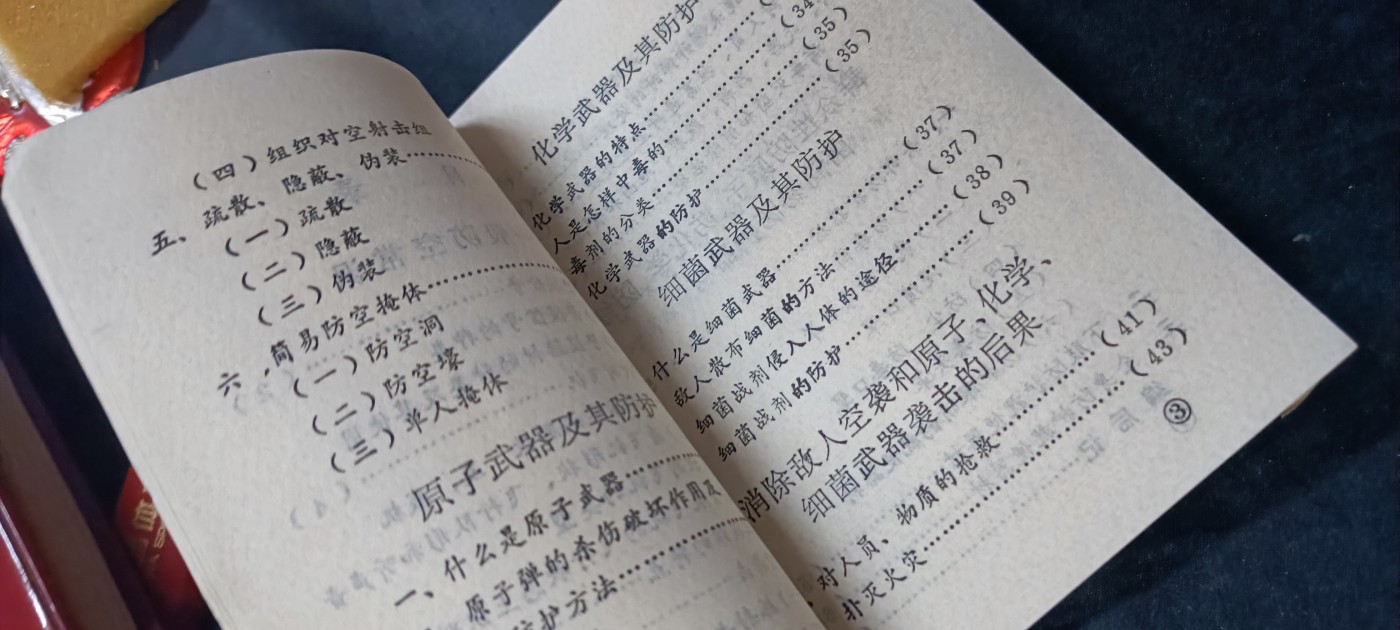 （四）组织对空射击组
五、疏散、隐蔽、伪装
（一）疏散
（二）隐蔽
（三）伪装
六、简易防空掩体
（一）防空洞
（二）防空壕
（三）单人掩体
原子武器及其防护
一、什么是原子武器
原子弹的杀伤破坏作用及
防护方法
化学武器及其防护
化学武器的特点（34
人是怎样中毒的（35）
毒剂的分类（35）
化学武器的防护
细菌武器及其防护
什么是细菌武器（37）
敌人散布细菌的方法（37）
细菌战剂侵入人体的途径（38）
细菌战剂的防护（39）
消除敌人空袭和原子、化学、
细菌武器袭击的后果
对人员、物质的抢救（41）
扑灭火灾（43）
③